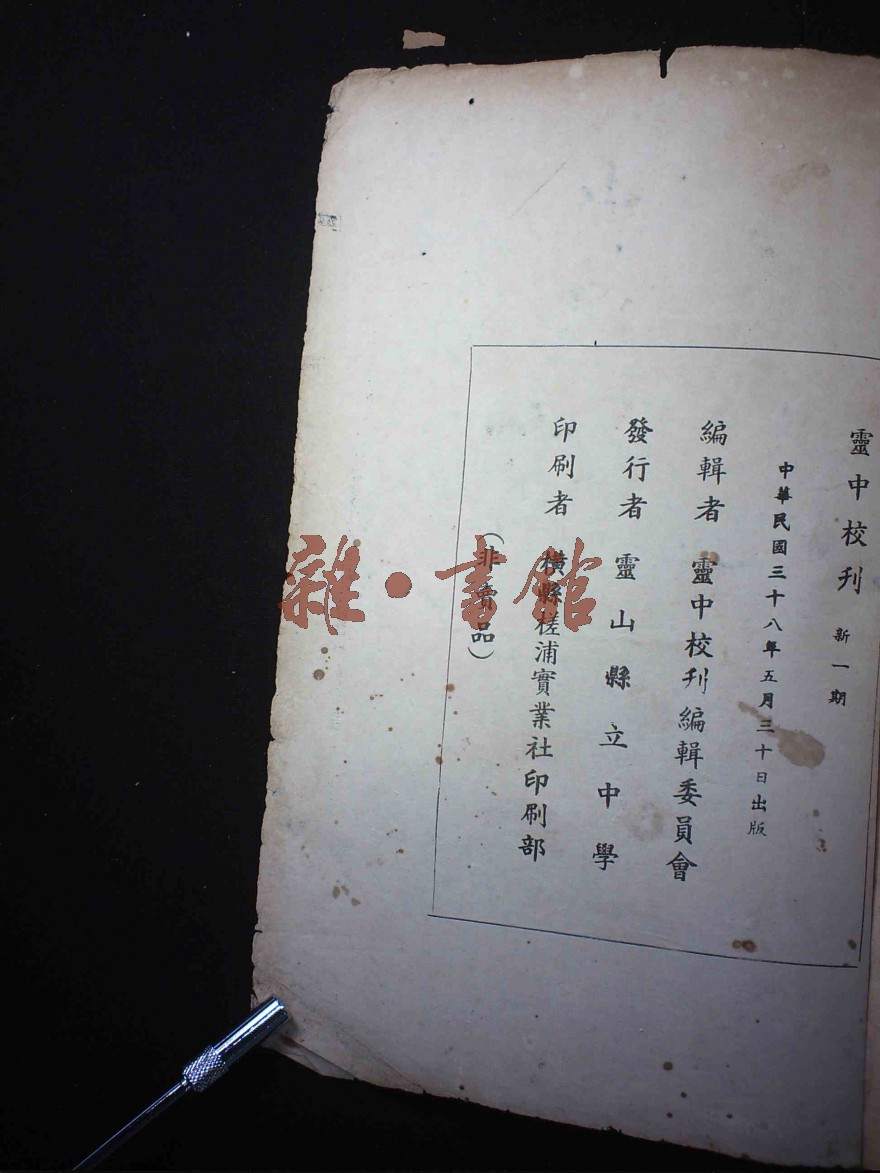 靈中校刋 新一期
中華民國三十八年五月三十日出版
編輯者 靈中校刋編輯委員會
發行者 靈山縣立中學
印刷者 橫縣槎浦實業社印刷部
(非賣品)
雜·書館